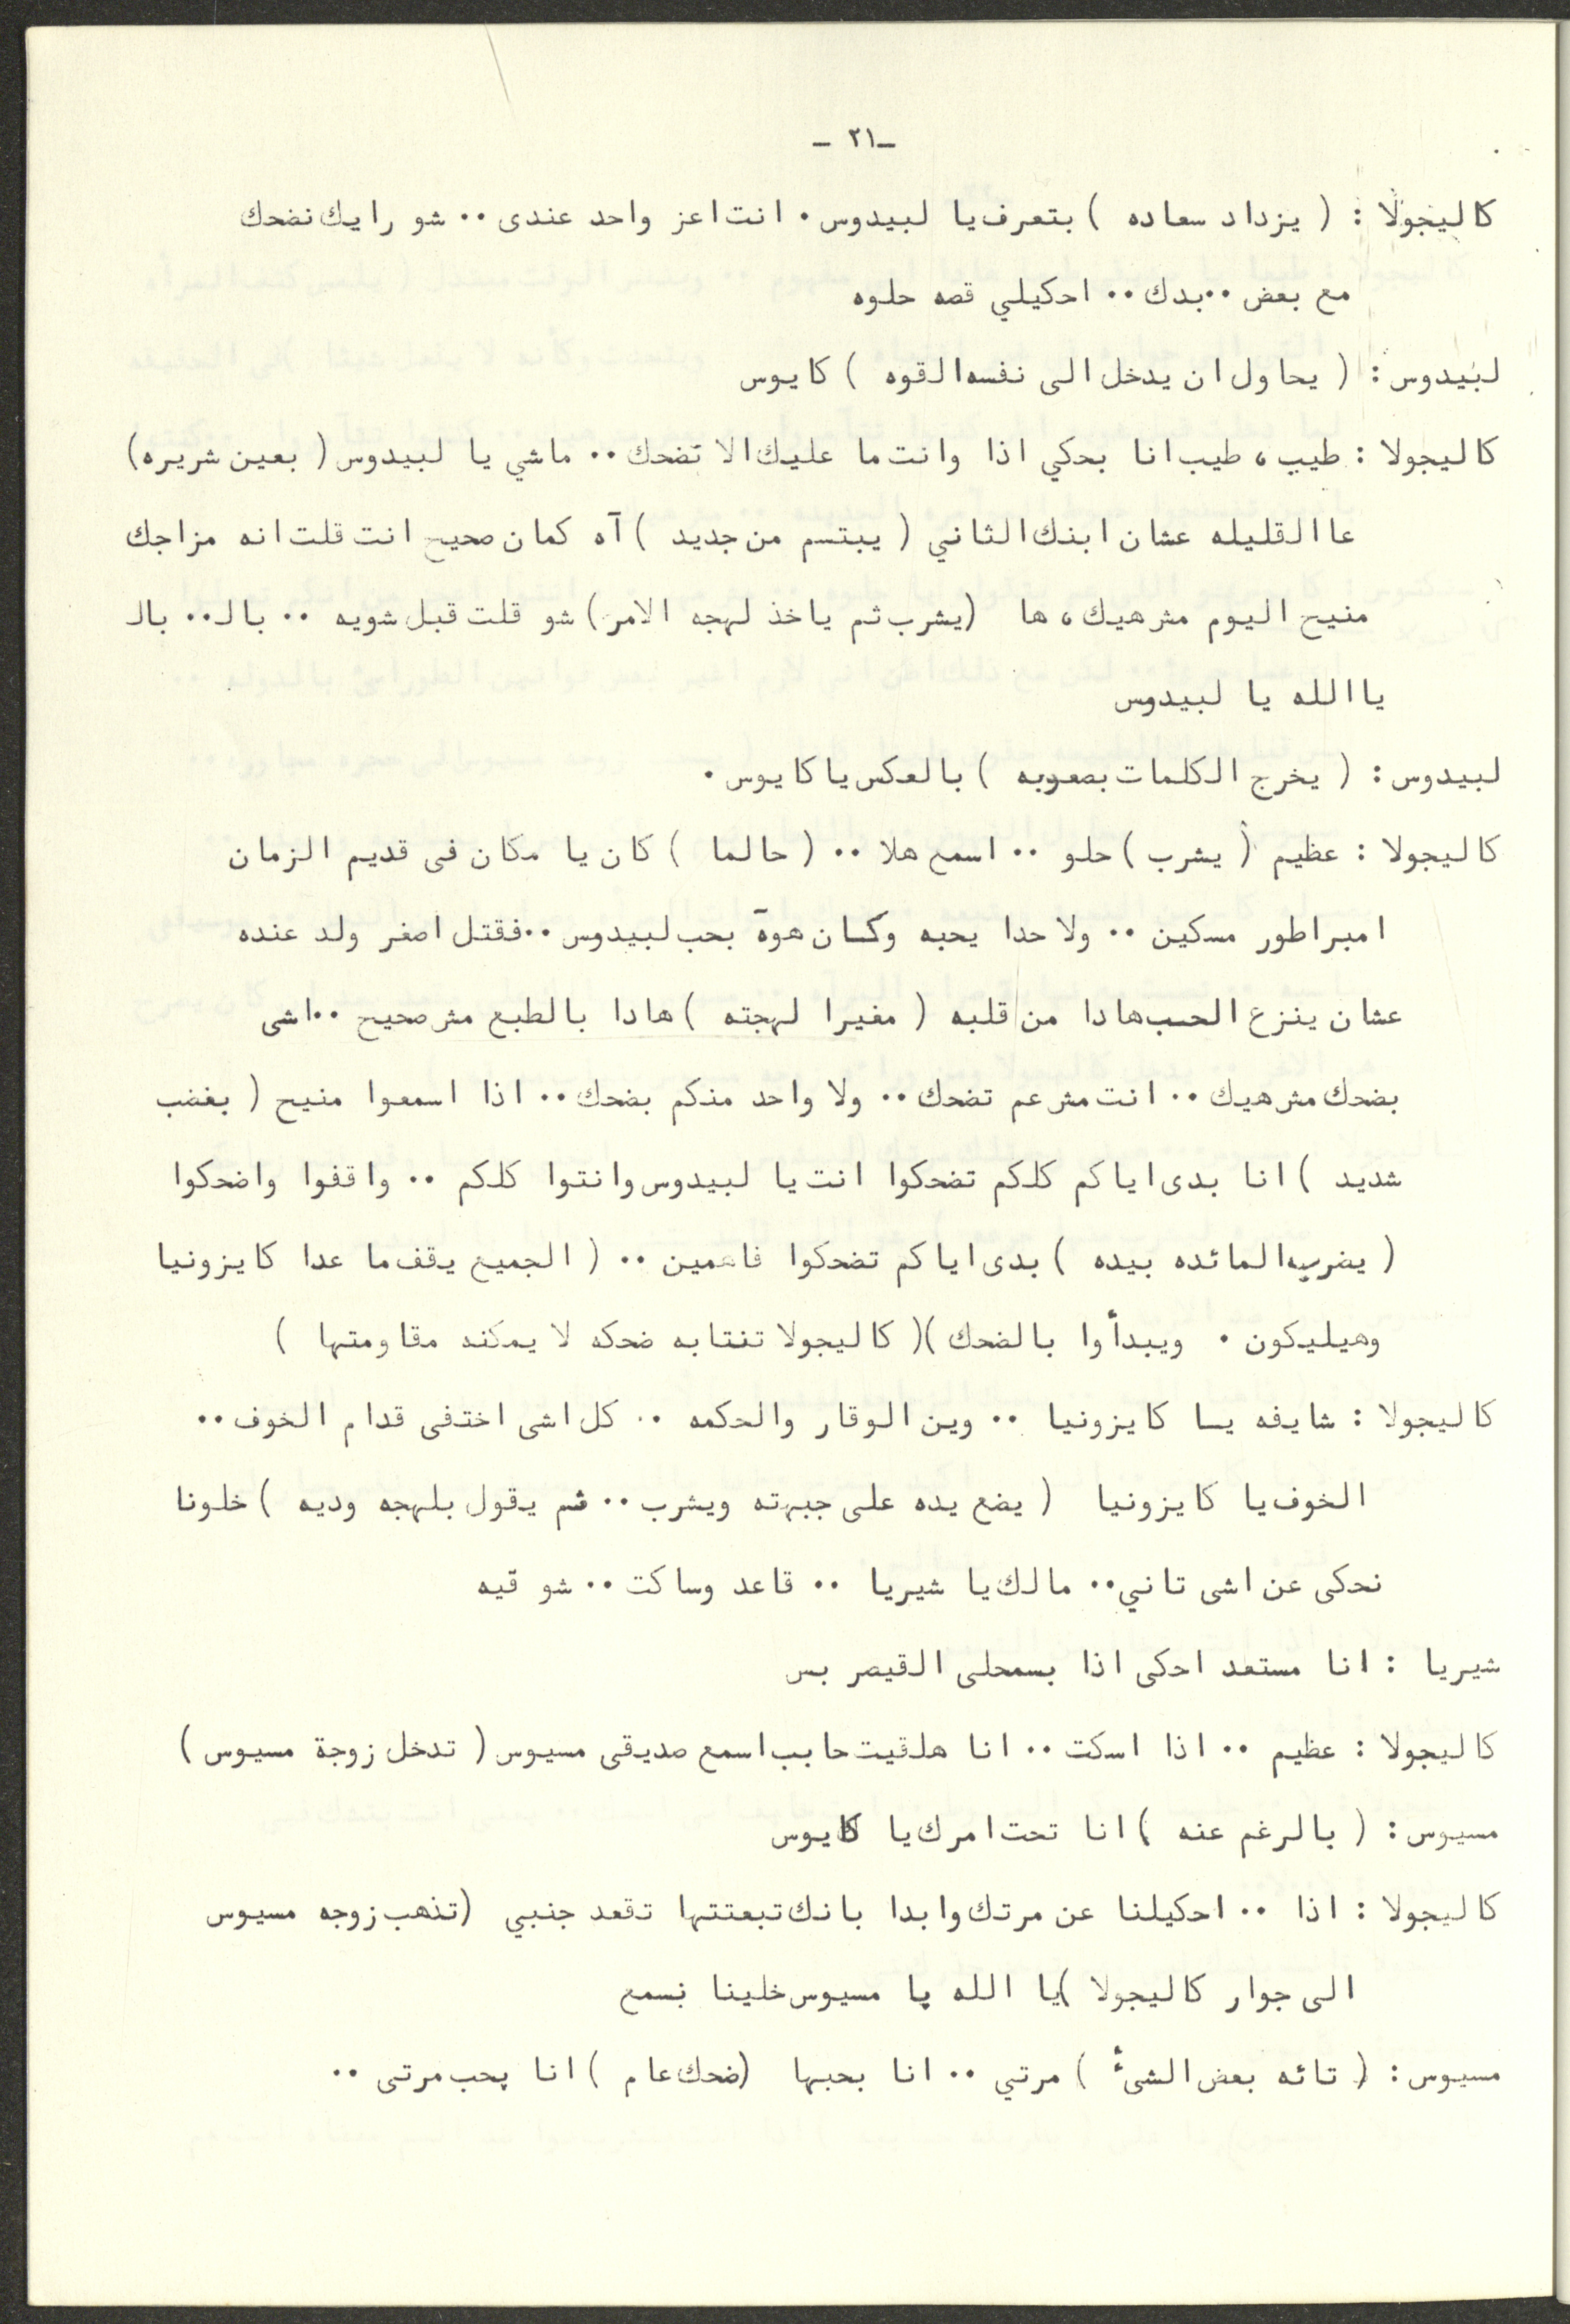 –٢١ –
كاليجولا : ( يزداد سعاده ) بتعرف يا لبيدوس . انت اعز واحد عندى .. شو رايك نضحك
مع بعض ..بدك .. احكيلي قصه حلوه
لبيدوس : ( يحاول ان يدخل الى نفسه القوه ) كايوس
كاليجولا : طيب ، طيب انا بحكي اذا وانت ما عليك الا تضحك .. ماشي يا لبيدوس ( بعين شريره )
عا القليله عشان ابنك الثاني ( يبتسم من جديد ) آه كمان صحيح انت قلت انه مزاجك
منيح اليوم مش هيك ، ها (يشرب ثم ياخذ لهجه الامر) شو قلت قبل شويه .. بالـ.. بالـ
يا الله يا لبيدوس
لبيدوس : ( يخرج الكلمات بصعوبه ) بالعكس يا كايوس .
كاليجولا : عظيم ( يشرب ) حلو .. اسمع هلا .. ( حالما ) كان يا مكان فى قديم الزمان
امبراطور مسكين .. ولا حدا يحبه وكان هوه بحب لبيدوس ..فقتل اصغر ولد عنده
عشان ينزع الحب هادا من قلبه ( مغيرا لهجته ) هادا بالطبع مش صحيح ..اشى
بضحك مش هيك .. انت مش عم تضحك .. ولا واحد منكم بضحك .. اذا اسمعوا منيح ( بغضب
شديد ) انا بدى اياكم كلكم تضحكوا انت يا لبيدوس وانتوا كلكم .. واقفوا واضحكوا
( يضرب المائده بيده ) بدى اياكم تضحكوا فاهمين .. ( الجميع يقف ما عدا كايزونيا
وهيليكون . ويبدأوا بالضحك )( كاليجولا تنتابه ضحكه لا يمكنه مقاومتها )
كاليجولا : شايفه يا كايزونيا .. وين الوقار والحكمه .. كل اشى اختفى قدام الخوف ..
الخوف يا كايزونيا ( يضع يده على جبهته ويشرب .. ثم يقول بلهجه وديه ) خلونا
نحكى عن اشى تاني.. مالك يا شيريا .. قاعد وساكت .. شو فيه
شيريا : انا مستعد احكى اذا بسمحلى القيصر بس
كاليجولا : عظيم .. اذا اسكت .. انا هلقيت حابب اسمع صديقى مسيوس ( تدخل زوجة مسيوس )
مسيوس : ( بالرغم عنه ) انا تحت امرك يا كايوس
كاليجولا : اذا .. احكيلنا عن مرتك وابدا بانك تبعتتها تقعد جنبي (تذهب زوجه مسيوس
الى جوار كاليجولا )يا الله يا مسيوس خلينا نسمع
مسيوس : ( تائه بعض الشىٔ ) مرتي .. انا بحبها (ضحك عام ) انا بحب مرتى ..